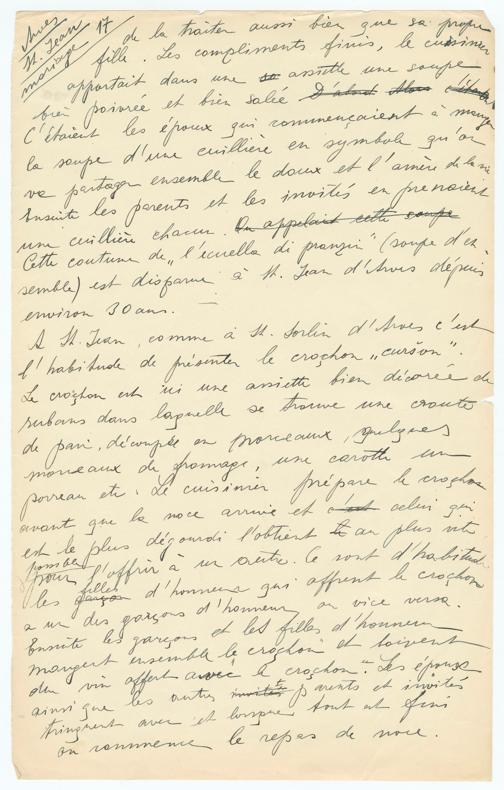 Arves
St. Jean
mariage
17
de la traiter aussi bien que sa propre
fille. Les compliments finis, le cuisinier
apportait dans une assiette une soupe
bien poivrée et bien salée D'abord Alors
C'étaient les époux qui commençaient à manger
la soupe d'une cuillière en symbole qu'on
va partager ensemble le doux et l'amère de la vie
Ensuite les parents et les invités en prenaient
une cuillière chacun. On appelait cette soupe
Cette coutume de „l'écuella di pranzin" (soupe d'en
semble) est disparue à St. Jean d'Arves dépuis
environ 30 ans. —
A St. Jean, comme à St. Sorlin d'Arves c'est
l'habitude de présenter le crochon „curšon".
Le crochon est ici une assiette bien décorée de
rubans dans laquelle se trouve une croute
de pain, découpée en morceaux, quelques
morceaux de fromage, une carotte un
porreau etc. Le cuisinier prépare le crochon
avant que la noce arrive et c'est celui qui
est le plus dégourdi l'obtient au plus vite
possible
pour l'offrir à un autre. Ce sont d'habitude
filles
les garçon d'honneur qui offrent le crochon
a un des garçons d'honneur, ou vice versa.
Ensuite les garçons et les filles d'honneur
mangent ensemble le crochon et boivent
du vin offert avec „le crochon". Les époux
ainsi que les autres invités parents et invités
tringuent avec et lorsque tout est fini
on commence le repas de noce.